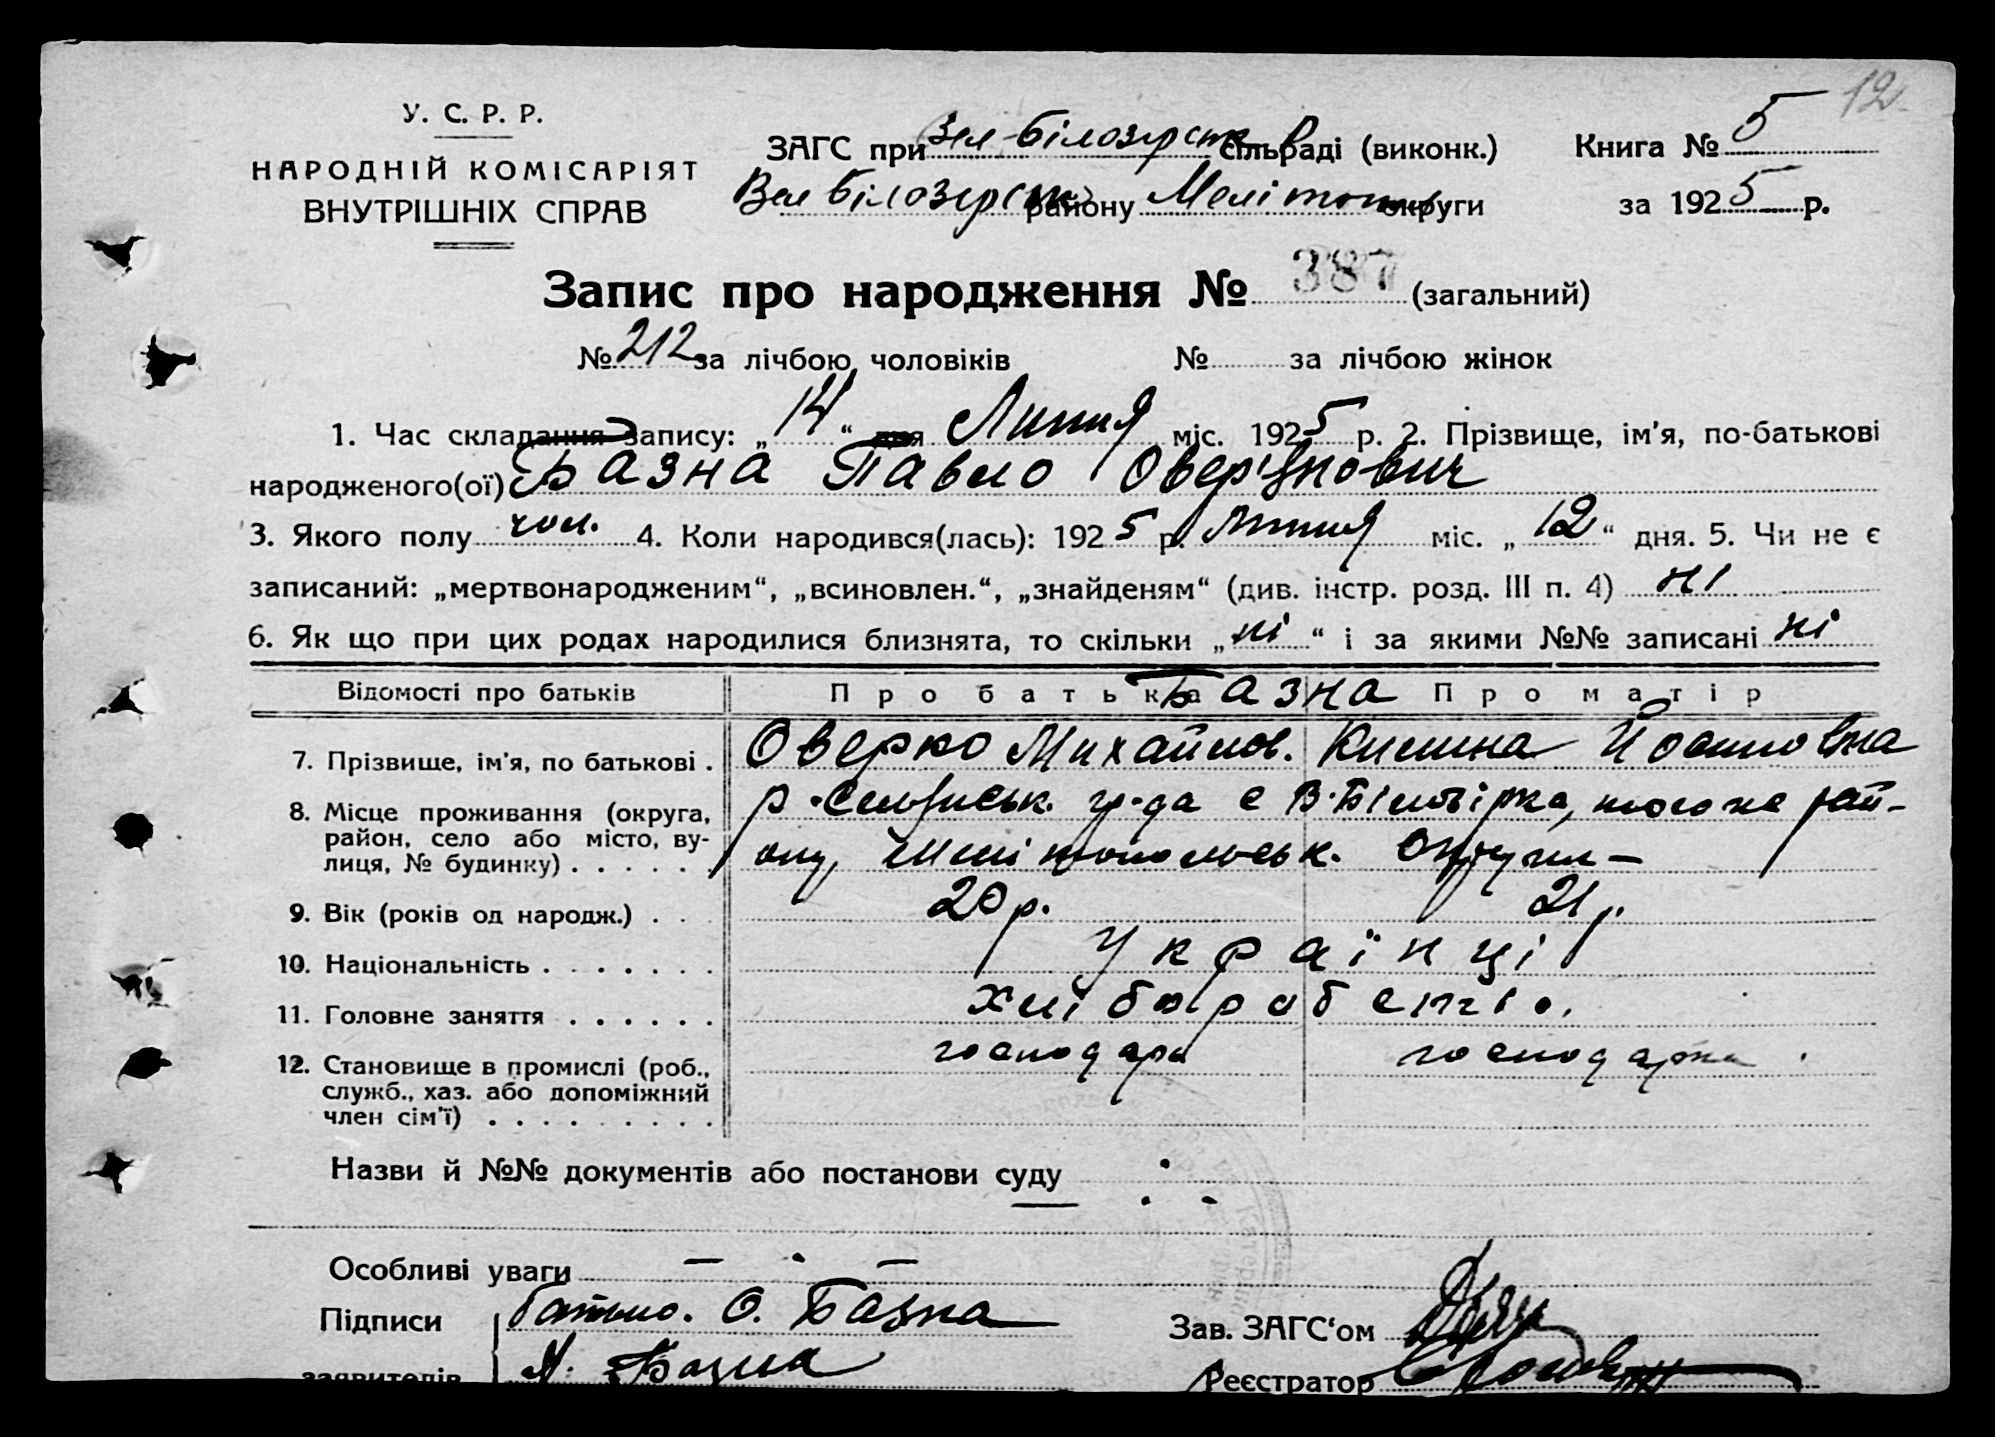 12
У. С. Р. Р.
НАРОДНІЙ КОМІСАРІЯТ
ВНУТРІШНІХ СПРАВ
ЗАГС при Вел-Білозерськ сільраді (виконк.)
Книга № 5
Вел Білозерськ району Мелітоп округи
за 1925 р.
Запис про народження № 387 (загальний)
№ 212 за лічбою чоловіків № за лічбою жінок
1. Час складання запису: „14“ дня Липня міс. 1925 р. 2. Прізвище, ім'я, по-батькові
народженого(ої) Базна Павло Овер'янович
3. Якого полу чол. 4. Коли народився(лась): 1925 р. Липня міс. „12“ дня. 5. Чи не є
записаний: „мертвонародженим“, „всиновлен.“, „знайденям“ (див. інстр. розд. III п. 4) ні
6. Як що при цих родах народилися близнята, то скільки „ні“ і за якими №№ записані ні
Відомості про батьків Про батька Базна Про матір
7. Прізвище, ім'я, по батькові . Оверко Михайлов. Килина Йосиповна
8. Місце проживання (округа,
район, село або місто, ву-
лиця, № будинку) . . . . . .
В-Білозірка, того же рай-
ону, округи —
9. Вік (років од народж.) . . 20 р. 21 р.
10. Національність . . . . . . . Українці
11. Головне заняття . . . . . . хліборобство.
12. Становище в промислі (роб.,
служб., хаз. або допоміжний
член сім'ї) . . . . . . . . .
господарь господарка
Назви й №№ документів або постанови суду
Особливі уваги
Підписи батько. О. Базна
Зав. ЗАГС'ом
заявителів Базна
Реєстратор